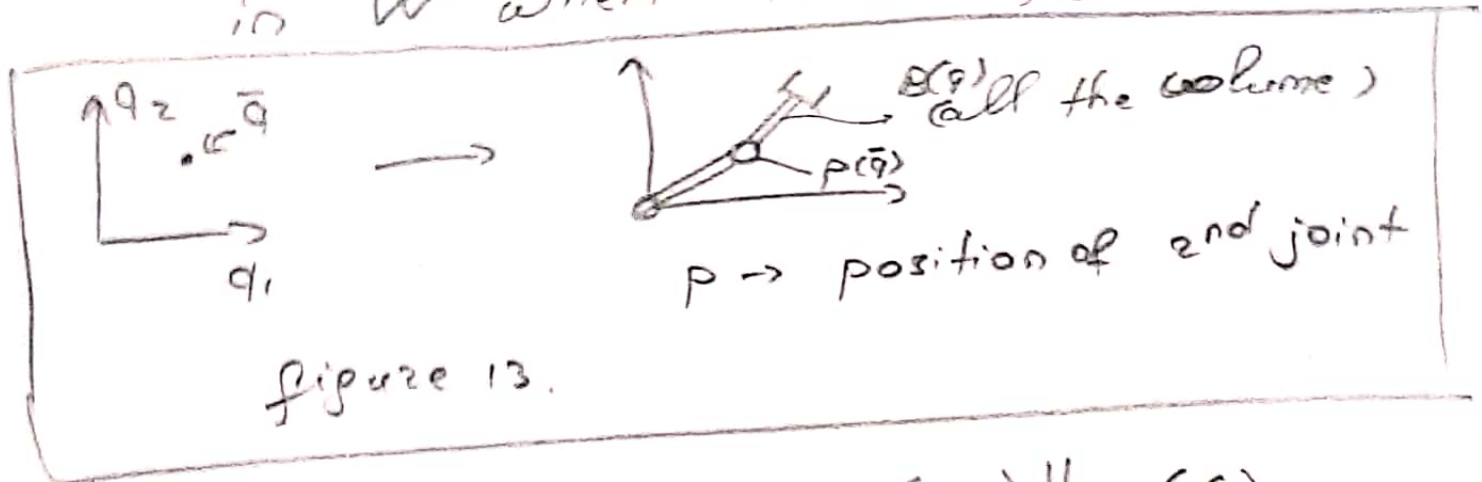 in W when
q2
q̄
B(q)
(all the volume)
p(q̄)
q1
p → position of 2nd joint
figure 13.